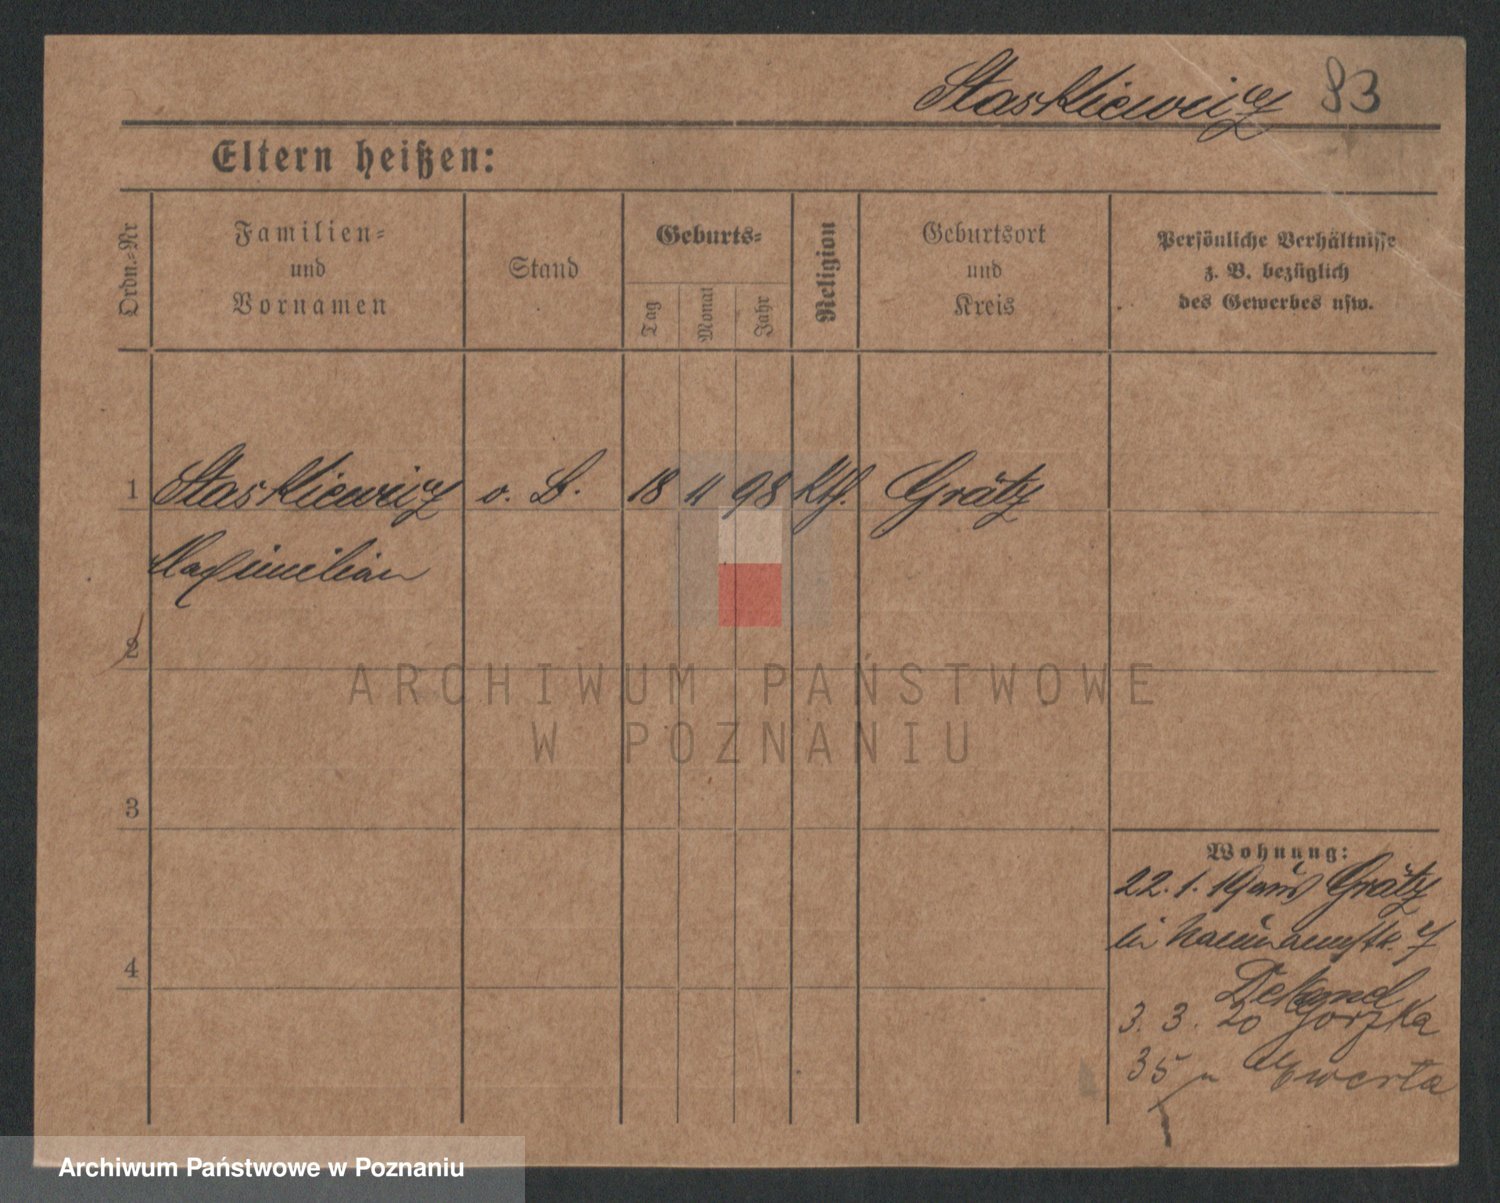 Staskiewicz 83
Eltern heißen:
Ordn.-Nr
Familien-
und
Vornamen
Stand
Geburts-
Tag
Monat
Jahr
Religion
Geburtsort
und
Kreis
Persönliche Verhältnisse
z. B. bezüglich
des Gewerbes usw.
1 Staskiewicz o. B. 18 11 98 kth. Grätz
Maximilian
2
3
4
Wohnung:
22. 1. 19 aus Grätz
bei Naumannstr. 7
3. 3. 20 Gorzka
35 u
ARCHIWUM PAŃSTWOWE
W POZNANIU
Archiwum Państwowe w Poznaniu